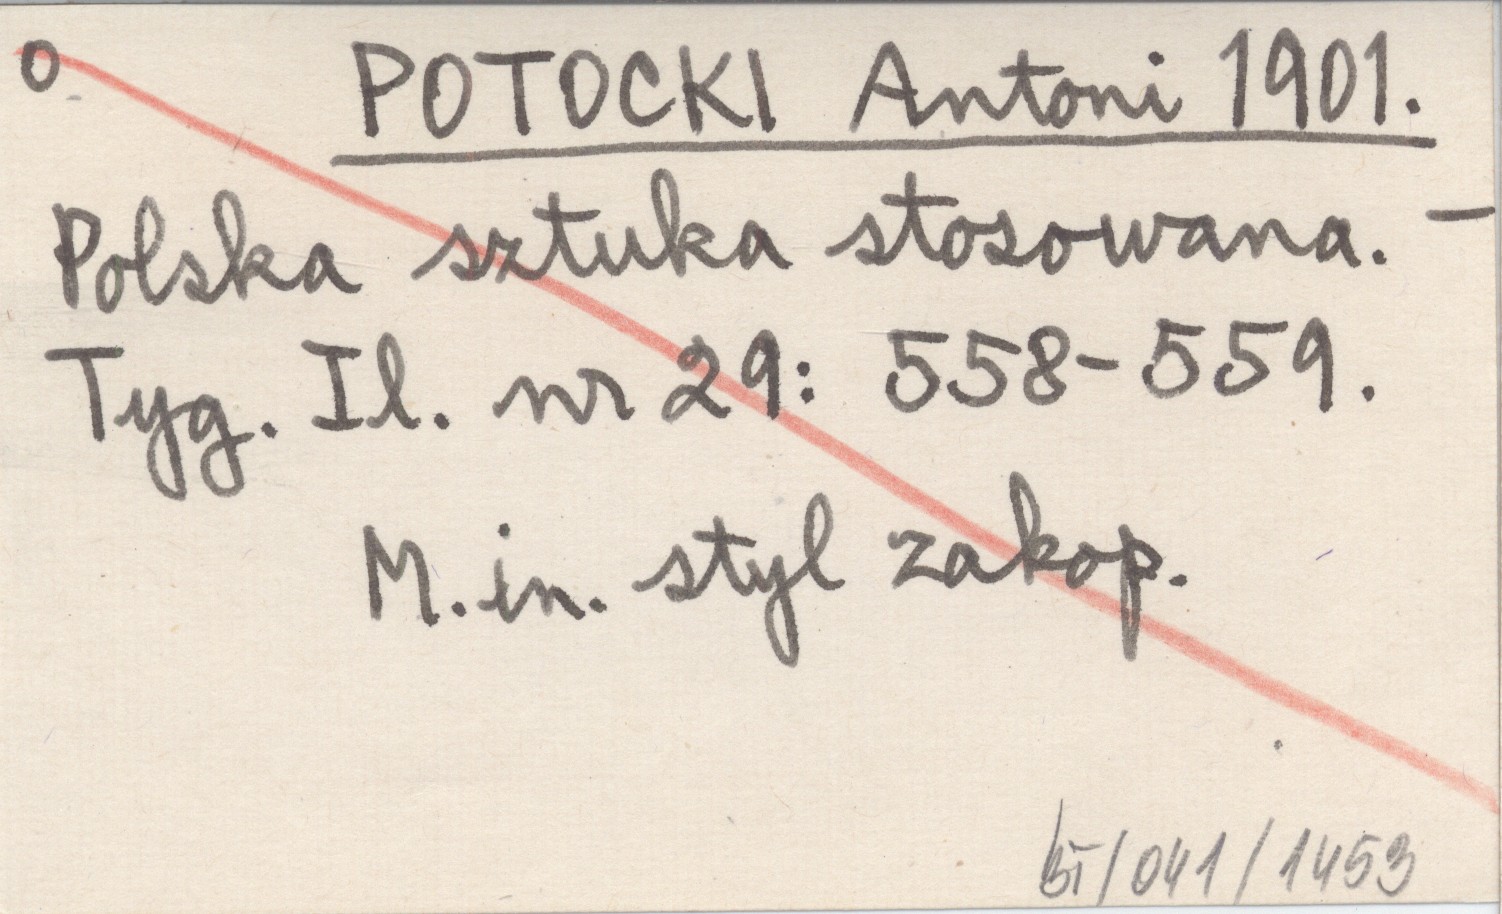 o POTOCKI Antoni 1901.
Polska sztuka stosowana. –
Tyg. Il. nr 29: 558-559.
M.in. styl zakop.
/041/1453